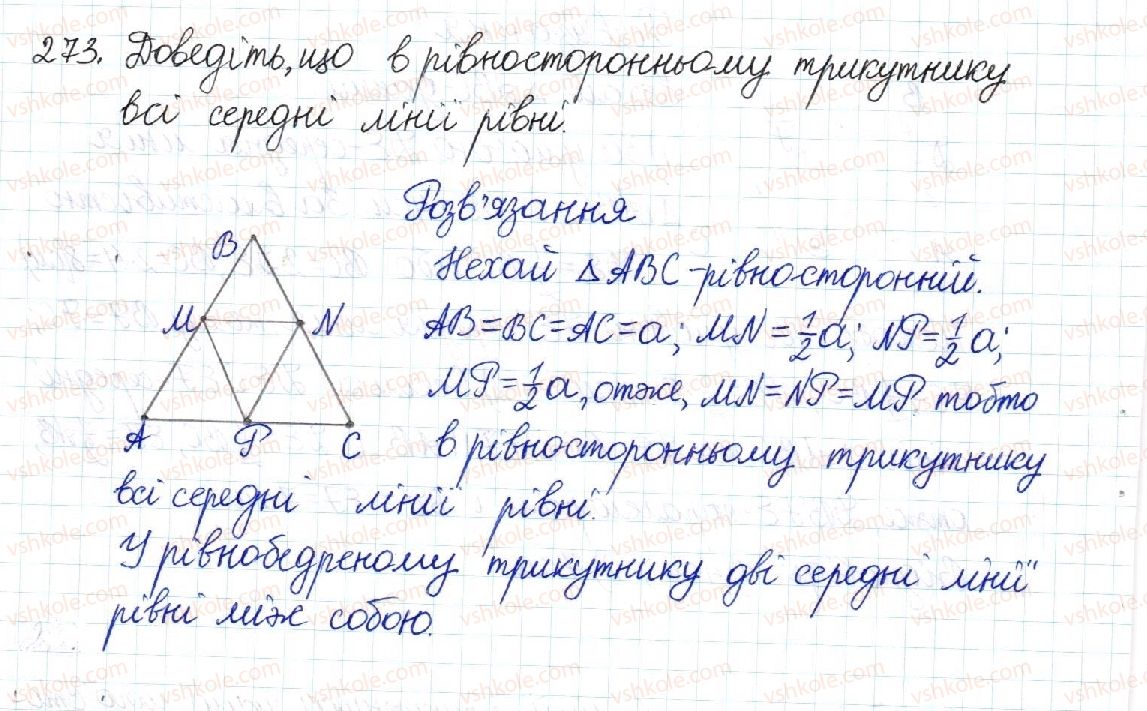 273. Доведіть, що в рівносторонньому трикутнику
всі середні лінії рівні.
Розв'язання
Нехай △ABC - рівносторонній.
AB=BC=AC=a; MN=1/2a; NP=1/2a;
MP=1/2a, отже, MN=NP=MP. тобто
в рівносторонньому трикутнику
всі середні лінії рівні.
У рівнобедреному трикутнику дві середні лінії
рівні між собою.
B
M
N
A
P
C
vshkole.com